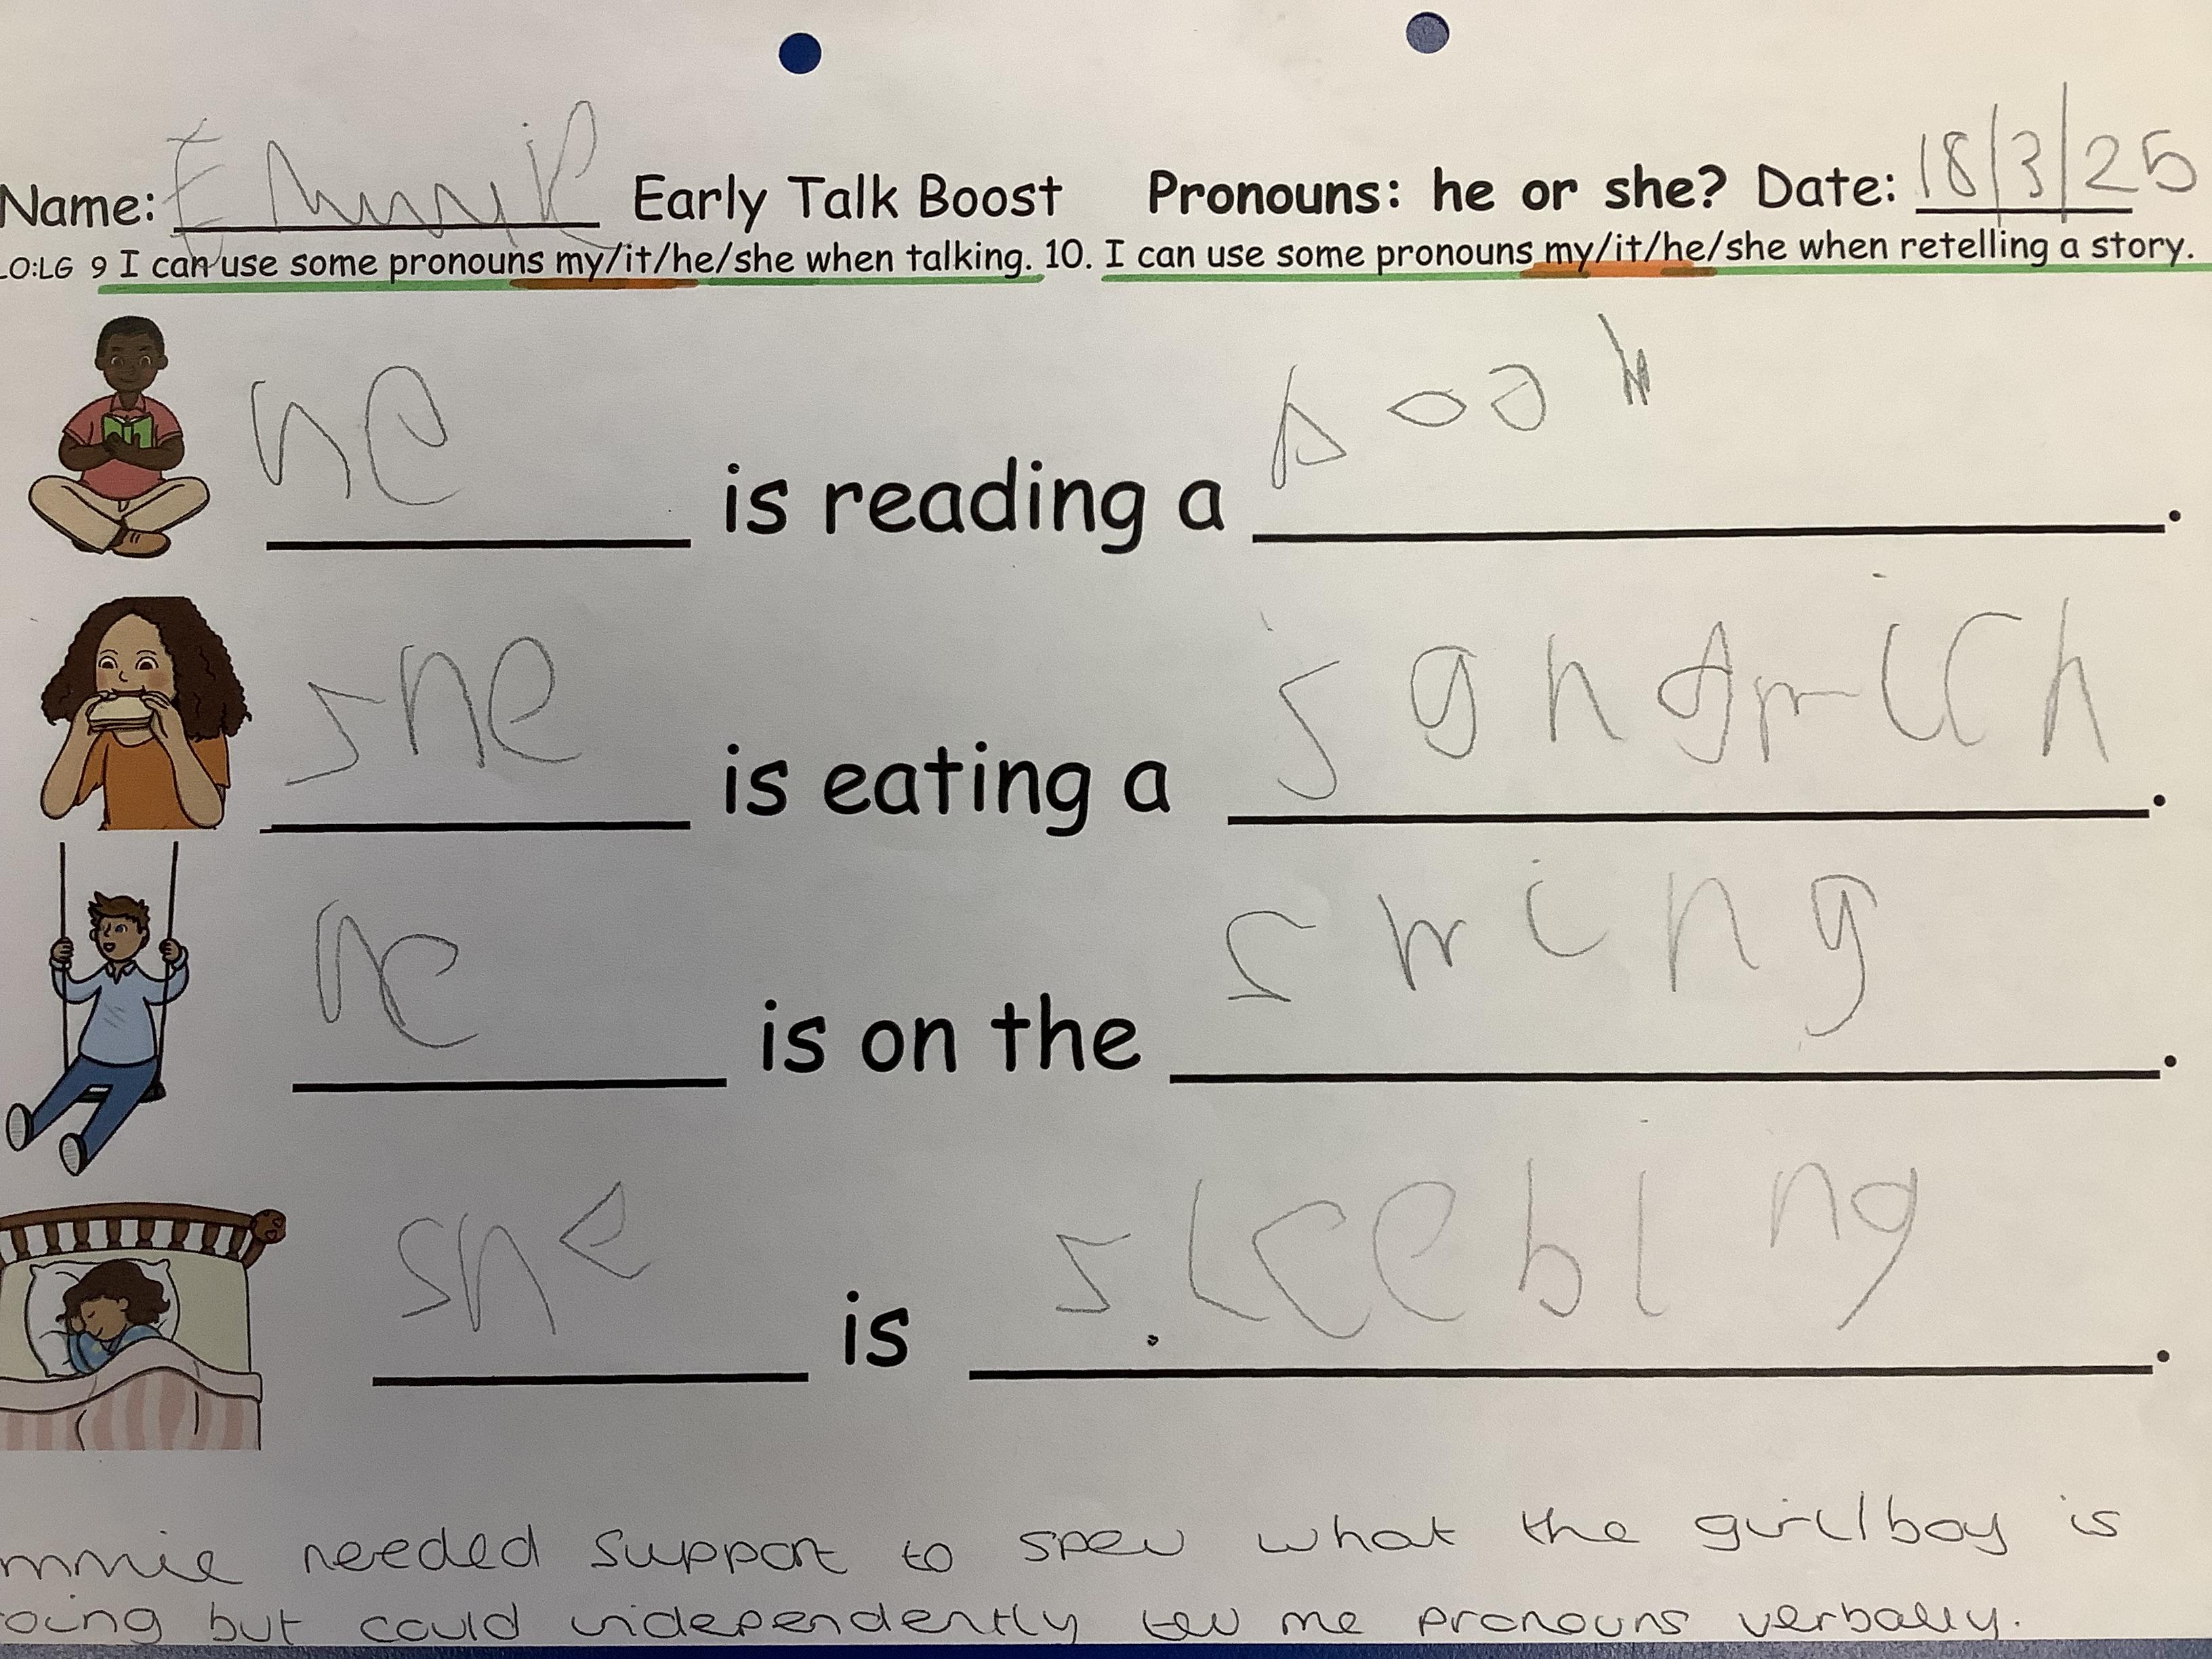 Name: Emmie Early Talk Boost Pronouns: he or she? Date: 18/3/25
LO:LG 9 I can use some pronouns my/it/he/she when talking. 10. I can use some pronouns my/it/he/she when retelling a story.
he is reading a book.
she is eating a sandwich.
he is on the swing.
she is sleebing.
mmie needed support to spell what the girl/boy is
oing but could independently tell me pronouns verbally.